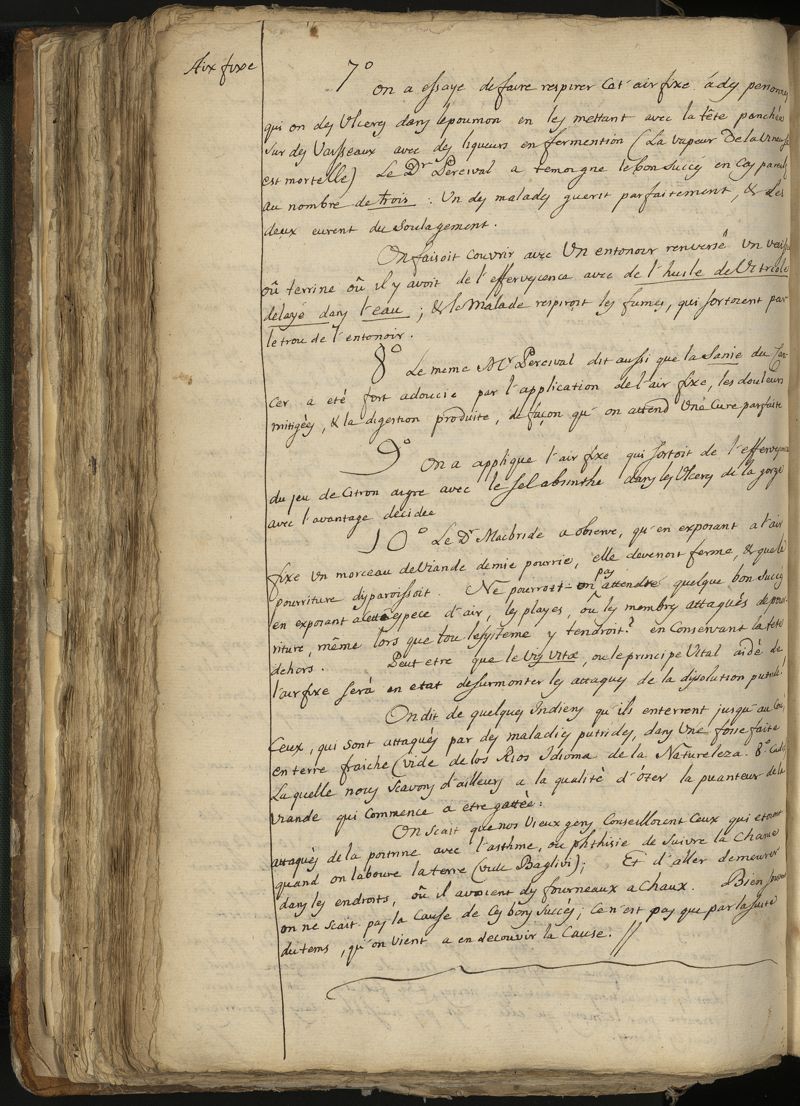 Air fixe
7° On a essayé de faire respirer Cet air fixe à des personnes
qui on des Ulceres dans le poumon en les mettant avec la tête panchée
sur des Vaisseaux avec des liqueurs en fermention (La vapeur De la Vineuse
est mortelle) Le Dr Percival a temoigné le bon Succés en Cas pareils
au nombre de trois : Un des malades guerit parfaitement, & Les
deux eurent du soulagement.
On faisoit couvrir avec Un entonoir renversé Un vaisseau
oû terrine oû il y avoit de l'effervescence avec de l'huile de Vitriole
delayé dans l'eau ; & le Malade respiroit les fumés, qui sortoient par
le trou de l'entonoir.
8° Le meme Mr Percival dit aussi que la Sanie du Can
cer a eté fort adoucie par l'application de l'air fixe, les douleurs
mitigées, & la digestion produite, de façon qu'on attend Une Cure parfaite
9° On a appliqué l'air fixe qui sortoit de l'effervescence
du jeu de Citron aigre avec le sel absinthe dans les Ulceres de la gorge
avec l'avantage décidée
10° Le Dr Macbride a observe, qu'en exposant a l'air
fixe Un morceau de Viande demie pourrie, elle devenoit ferme, & que la
pourriture dysparoissoit. Ne pourroit-on pas attendre quelque bon Succés
en exposant a cette espece d'air, les playes, oû les membres attaqués de pour-
riture, même lors que tou le systeme y tendroit? en Conservant la tête
dehors. Peut etre que le vis vitæ, ou le principe Vital aidé de
l'air fixe serà en etat de surmonter les attaques de la dissolution putride!
On dit de quelques Indiens qu'ils enterrent jusqu'au Coû,
Ceux, qui sont attaqués par des maladies putrides, dans Une fosse faite
en terre fraiche (vide de los Rios Idioma de la Natureleza. 8°
La quelle nous Scavons d'ailleurs a la qualité d'oter la puanteur de la
Viande qui Commence a etre gattée:
On scait que nos Vieux gens Conseilloient Ceux qui etoient
attaqués de la poitrine avec l'asthme, ou phthisie de suivre la Charue
quand on laboure la terre (vide Baglivi); Et d'aller demeurer
dans les endroits, oû il avoient des fourneaux a Chaux. Bien
on ne scait pas la Cause de Ces bons Succés; Ce n'est pas que par la suite
du tems, qu'on Vient a en decouvir la Cause. //